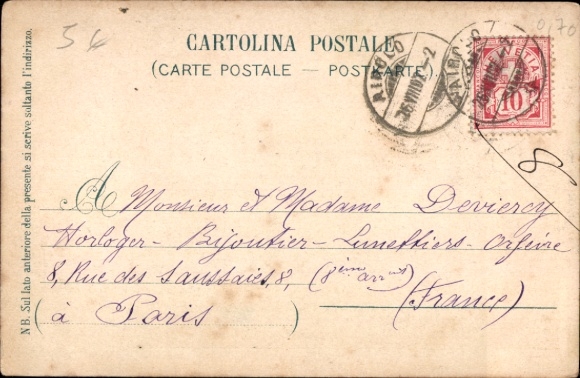 5 6
0,70
CARTOLINA POSTALE
(CARTE POSTALE — POSTKARTE).
AIROLO
AIROLO
HELVETIA
10
8
A Monsieur et Madame Deviercy
Horloger - Bijoutier - Lunettiers - Orfèvre
8, Rue des Saussaies, 8, (8ème arrt)
à Paris (France)
NB. Sul lato anteriore della presente si scrive soltanto l'indirizzo.